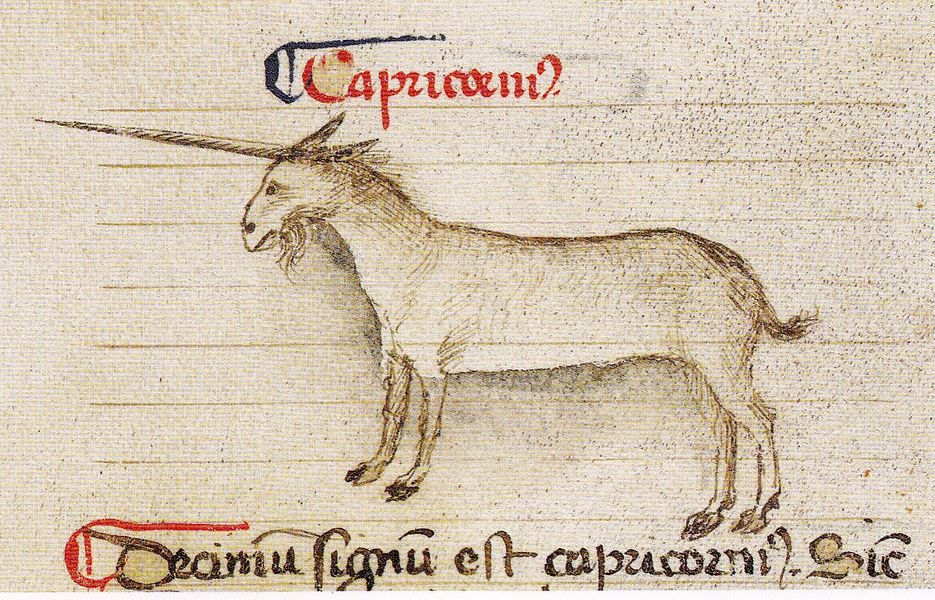 ¶ Capricornꝰ
¶ Decimū ſignū eſt capricornꝰ. Sic̄